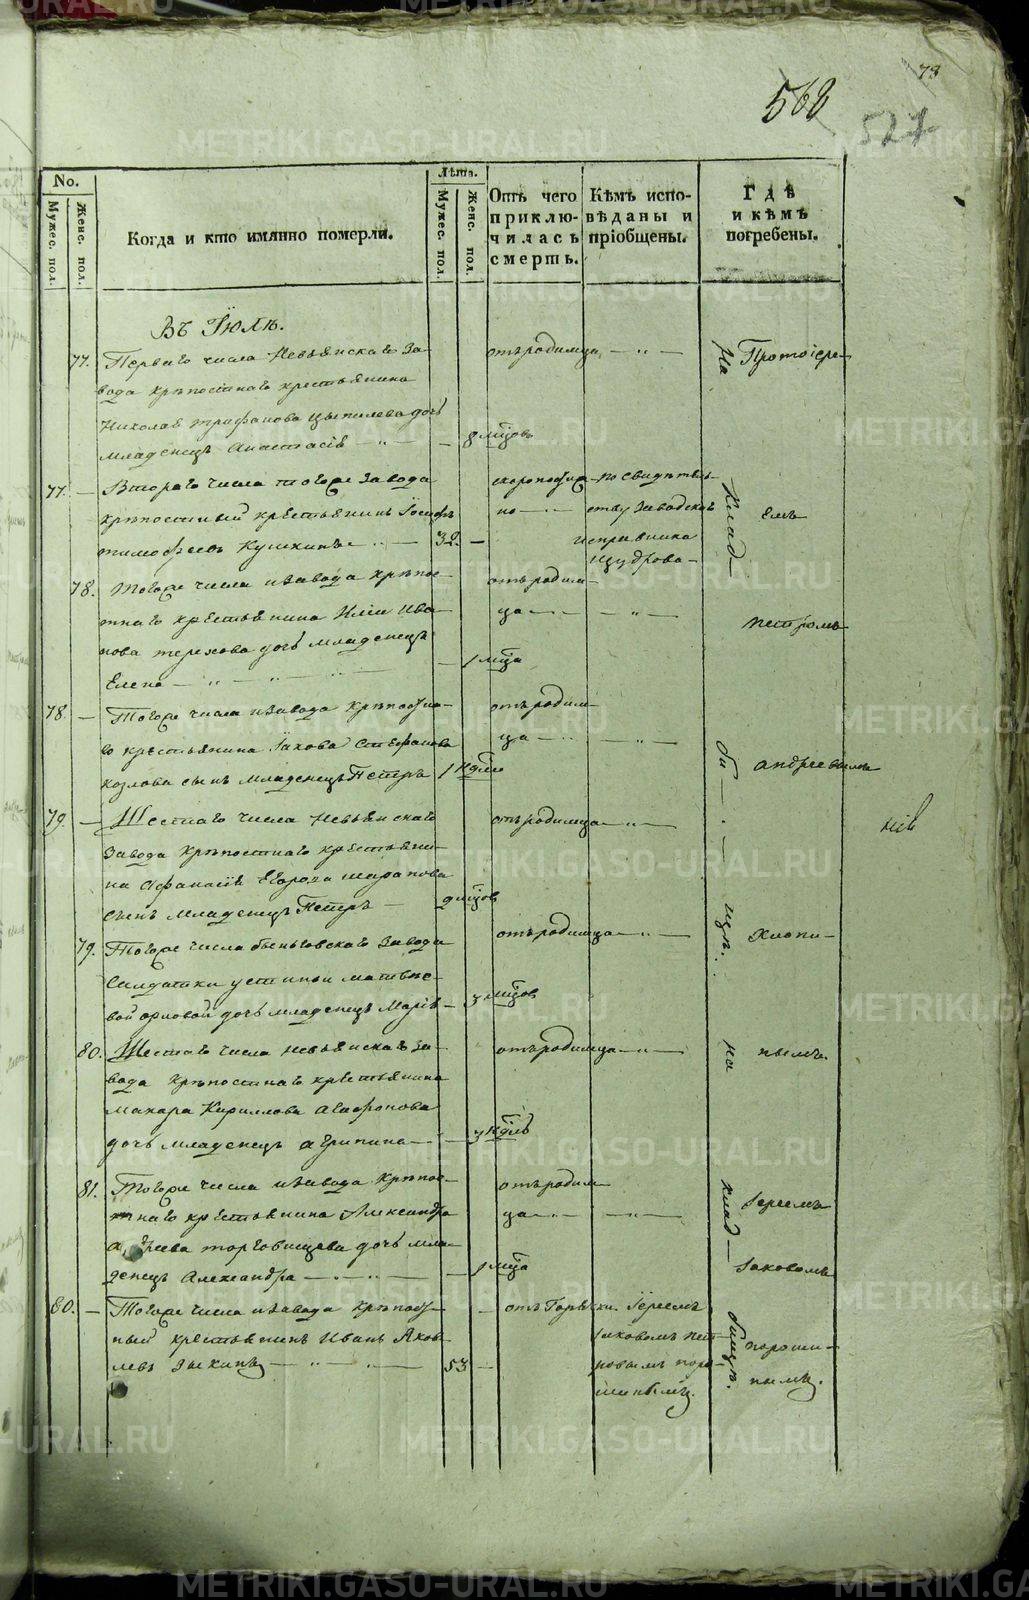 73
568
521
No.
Мужес. пол.
Женс. пол.
Когда и кто имянно померли.
Лѣта.
Мужес. пол.
Женс. пол.
Отъ чего приключилась смерть.
Кѣмъ исповѣданы и пріобщены.
Гдѣ и кѣмъ погребены.
Въ Іюлѣ.
77. Перваго числа Невьянскаго За-
вода крѣпостнаго крестьянина
Николая Трифанова Цыпилева дочь
младенецъ Анастасія — 8 мѣцовъ
отъ родимца
77. Втораго числа тогоже завода
крѣпостный крестьянинъ Іосифъ
Тимофеевъ Кушкинъ — 32.
скоропостиж-
но
по свидѣтель-
ству Заводскаго
исправника
Щудрова
78. Тогоже числа и завода крѣпос-
тнаго крестьянина Иліи Ива-
нова Терехова дочь младенецъ
Елена — 1 мѣца
отъ родим-
ца
78. Тогоже числа и завода крѣпостна-
го крестьянина Іакова Стефанова
Козлова сынъ младенецъ Петръ 1 нѣдли
отъ родим-
ца
79. Шестаго числа Невьянскаго
Завода крѣпостнаго крестьяни-
на Афанасія Егорова Шарапова
сынъ младенецъ Петръ — 9 мѣцовъ
отъ родимца
79. Тогоже числа Быньговскаго Завода
Солдатки Устиньи Матвѣе-
вой Орловой дочь младенецъ Марія — 3 мѣцовъ
отъ родимца
80. Шестаго числа Невьянскаго За-
вода крѣпостнаго крестьянина
Макара Кириллова Агафонова
дочь младенецъ Агрипина — 3 нѣдль
отъ родимца
81. Тогоже числа и завода крѣпос-
тнаго крестьянина Александра
Торговищева дочь мла-
денецъ Александра — 1 мѣца
отъ родим-
ца
80. Тогоже числа и завода крѣпост-
ный крестьянинъ Иванъ Яков-
левъ Зыкинъ — 53
отъ Горячки
Іереемъ
Іаковомъ Пет-
ровымъ Поро-
шинымъ.
На
Клад-
би-
щѣ.
на
клад-
бищѣ.
Протоіере-
емъ
Петромъ
Андреевымъ
Хлопи-
нымъ
Іереемъ
Іаковомъ
Пороши-
нымъ.
METRIKI.GASO-URAL.RU